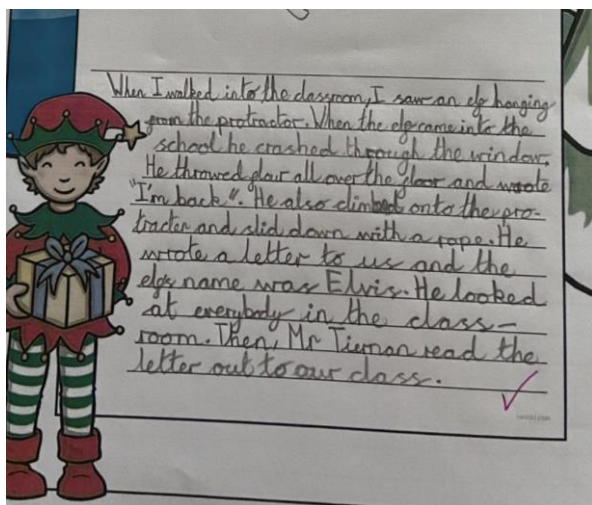 When I walked into the classroom, I saw an elf hanging
from the protractor. When the elf came into the
school he crashed through the window.
He throwed flour all over the floor and wrote
"I'm back". He also climbed onto the pro-
tracter and slid down with a rope. He
wrote a letter to us and the
elfs name was Elvis. He looked
at everybody in the class-
room. Then, Mr Tiernan read the
letter out to our class.